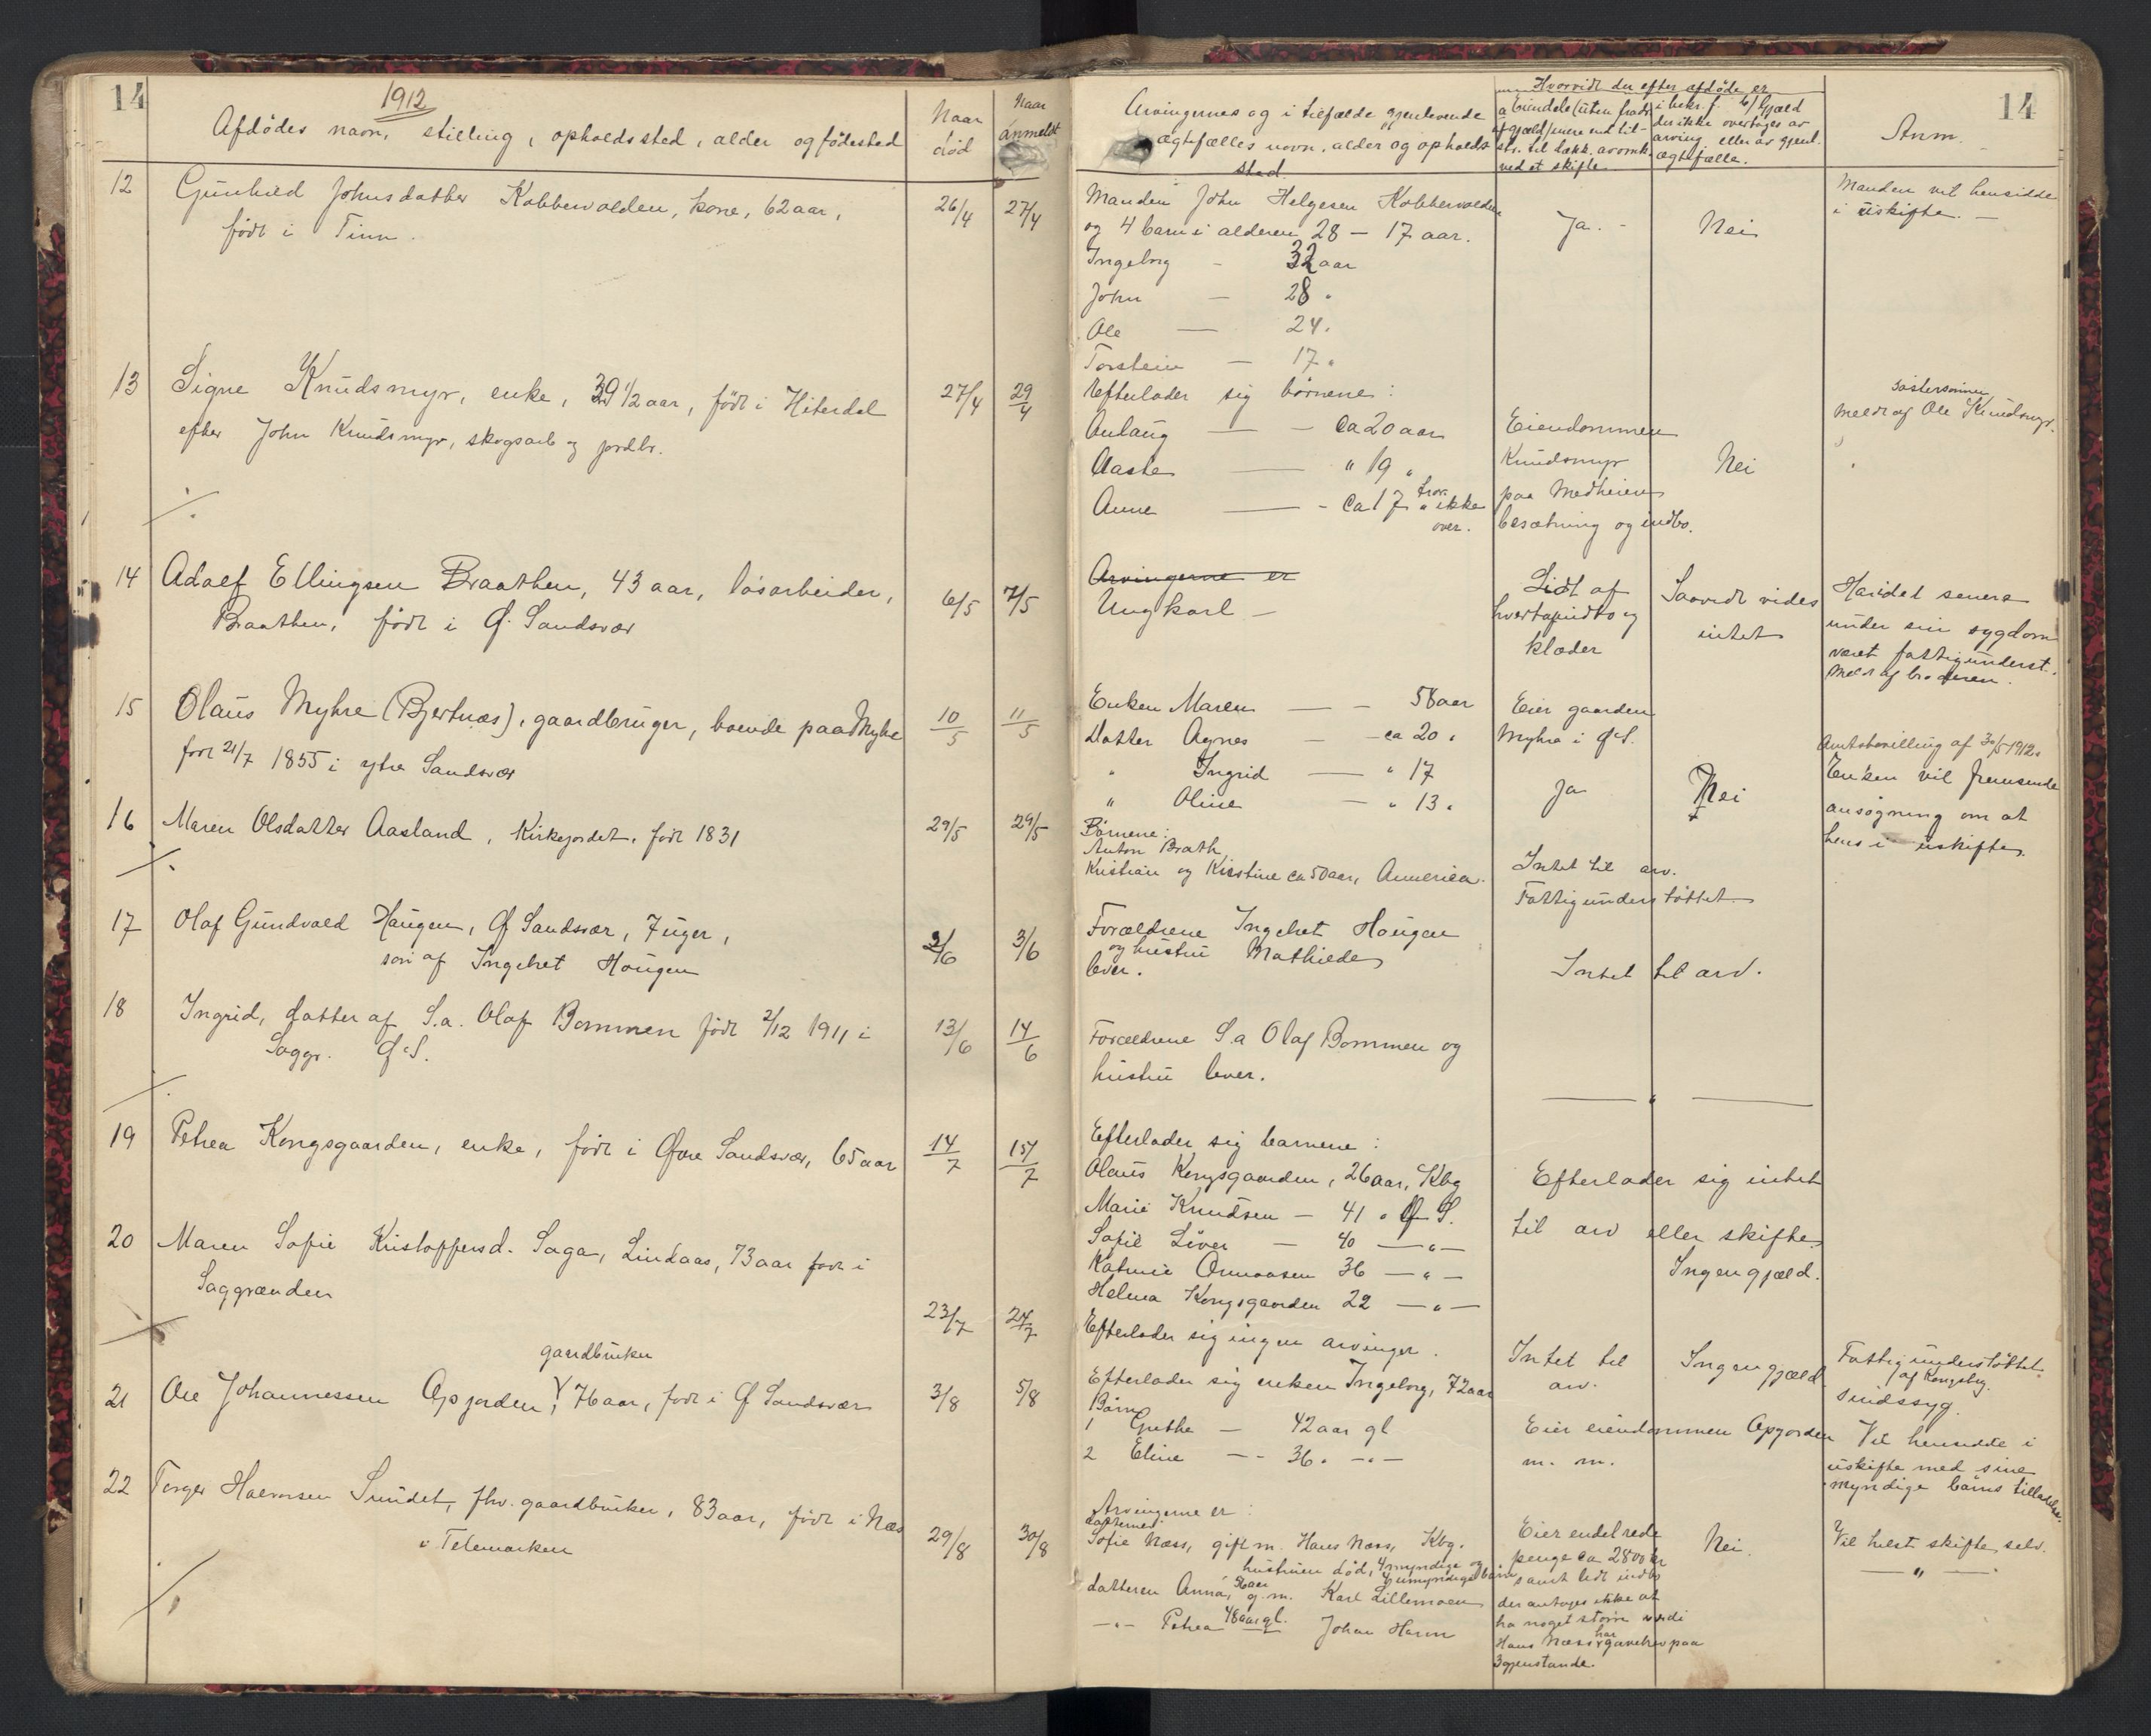 14
1912
Afdödes navn, stilling, opholdssted, alder og födested
Naar
död
Naar
anmeldt
12
Gunhild Johnsdatter Kobbervolden, kone, 62 aar,
födt i Tinn.
26/4
27/4
13
Signe Knudsmyr, enke, 39 1/2 aar, födt i Hiterdal
efter John Knudsmyr, skogsarb og jordbr.
27/4
29/4
14
Adolf Ellingsen Braathen, 43 aar, lösarbeider,
Braathen, födt i Ö. Sandsvær
6/5
7/5
15
Olaus Myhre (Bjertnæs), gaardbruger, boende paa Myhre
född 21/7 1855 i ytre Sandsvær
10/5
11/5
16
Maren Olsdatter Aasland, Kirkejordet, född 1831
29/5
29/5
17
Olaf Gundvald Haugen, Ö Sandsvær, 7 uger,
sön af Ingebret Haugen
2/6
3/6
18
Ingrid, datter af S.a. Olaf Bommen födt 2/12 1911 i
Saggr. Ö.S.
13/6
14/6
19
Petrea Kongsgaarden, enke, födt i Övre Sandsvær, 65 aar
14/7
15/7
20
Maren Sofie Kristoffersd. Saga, Lindaas, 73 aar född i
Saggrænden
23/7
24/7
gaardbruker
21
Ole Johannessen Opjorden, 76 aar, född i Ö Sandsvær
3/8
5/8
22
Torger Halvorsen Sundet, fhv. gaardbruker, 83 aar, födt i Næs
i Telemarken
29/8
30/8
14
Arvingernes og i tilfælde gjenlevende
ægtefælles navn, alder og opholds
sted.
Hvorvidt der efter afdöde er
a Eiendele (uten fradr.
af gjæld) mere end til-
str. til dækk. av omk.
ved et skifte.
i bekr. f. b) Gjæld
der ikke overtages av
arving eller av gjenl.
ægtefælle.
Anm.
Manden John Helgesen Kobbervolden
og 4 barn i alderen 28 - 17 aar.
Ingeborg - 32 aar
John - 28 "
Ole - 24 "
Torstein - 17 "
Ja. -
Nei
Manden vil hensidde
i uskifte. -
Efterlader sig börnene:
Anlaug - - Ca 20 aar
Aaste - " 19 "
Anne - - Ca 17 " tror ikke
over.
Eiendommen
Knudsmyr
paa Medheien
besætning og indbo.
Nei
söstersönnen
Meldt af Ole Knudsmyr.
Arvingerne er
Ungkarl -
Lidt af
hvert af indbo og
klæder
Saavidt vides
intet
Har i det senere
under sin sygdom
været fattigunderst.
Meldt af broderen.
Enken Maren - - 58 aar
Datter Agnes - - ca 20 "
" Ingrid - " 17
" Oline - " 13 "
Eier gaarden
Myhre i Ö.S.
Ja
Nei
Amtsbevilling af 30/5 1912.
Enken vil fremsende
ansögning om at
hens i uskifte.
Börnene:
Anton Brath
Kristian og Kirstine ca 50 aar, Amerika.
Intet til arv.
Fattigunderstöttet
Forældrene Ingebret Haugen
og hustru Mathilde
lever.
Intet til arv.
Forældrene S.a Olaf Bommen og
hustru lever.
— " —
Efterlader sig barnene:
Olaus Kongsgaarden, 26 aar, Kbg
Marie Knudsen - 41 " Ö S.
Sofie Liver - 40 — " —
Katrine Ormaasen 36 — " —
Helena Kongsgaarden 22 — " —
Efterlader sig intet
til arv eller skifte
Ingen gjæld.
Efterlader sig ingen arvinger.
Intet til
arv.
Ingen gjæld
Fattigunderstöttet
af Kongsberg.
Sindssyg.
Efterlader sig enken Ingeborg, 72 aar
Börn
1 Grethe - 42 aar gl
2 Eline - - 36 " - " -
Eier eiendommen Opjorden
m. m.
Vil hensidde i
uskifte med sine
myndige börns tilladelse.
Arvingerne er:
datteren
Sofie Næss, gift m. Hans Næss, Kbg.
hustruen död, 4 myndige og
umyndige barn
datteren Anna, 56 aar g. m. Karl Lillemoen
— " — Petrea 48 aar gl. Johan Hamn
Eier endel rede
penge ca 2800 kr
samt lidt indbo
der antages ikke at
ha noget större værdi
Hans Næss har gavebrev paa
3 gjenstande.
Nei.
Vil helst skifte selv.
— " —